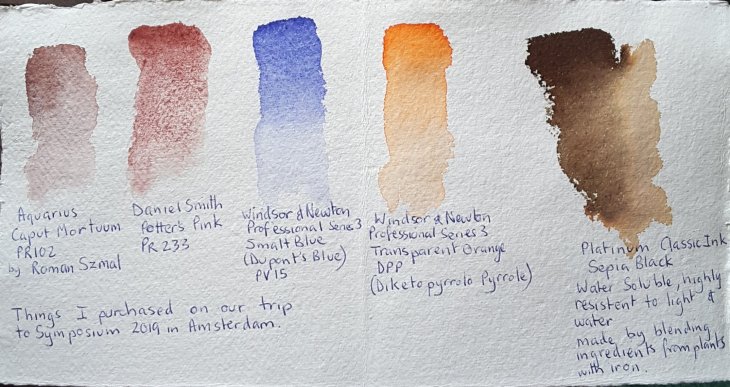 Aquarius
Caput Mortuum
PR102
by Roman Szmal
Daniel Smith
Potters Pink
PR 233
Windsor & Newton
Professional Series 3
Smalt Blue
(Dupont's Blue)
PV15
Windsor & Newton
Professional Series 3
Transparent Orange
DPP
(Diketo pyrrolo Pyrrole)
Platinum Classic Ink
Sepia Black
Water Soluble, highly
resistent to light &
water
made by blending
ingredients from plants
with iron.
Things I purchased on our trip
to Symposium 2019 in Amsterdam.